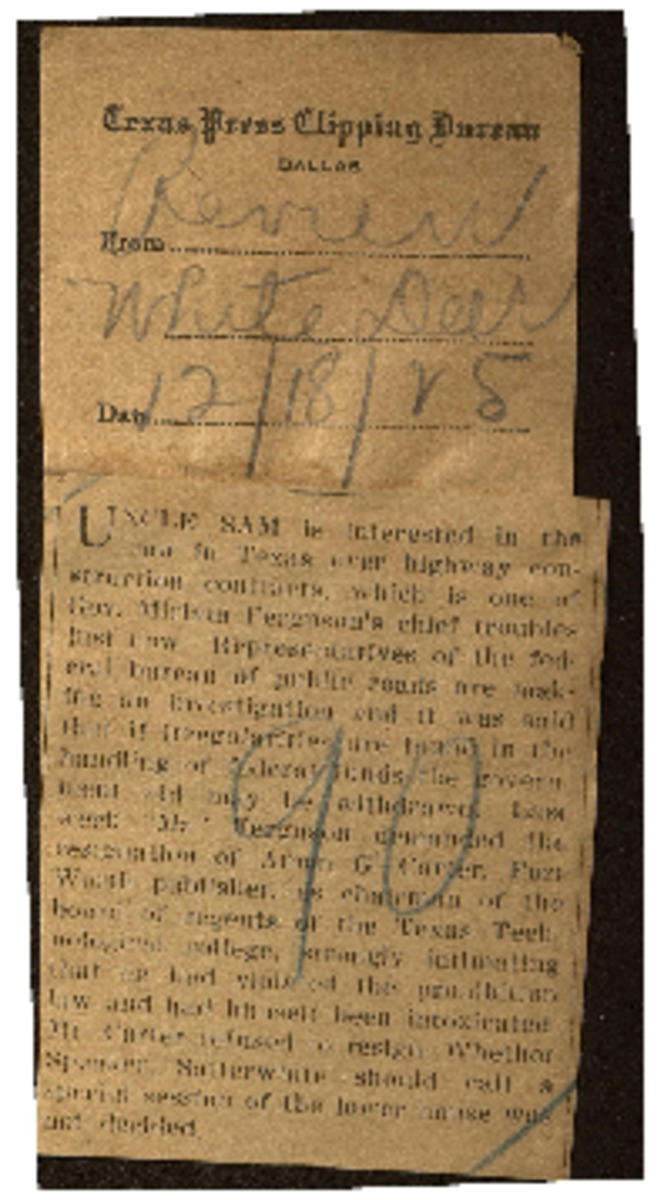 Texas Press Clipping Bureau
DALLAS
Review
From
White Deer
12/18/25
Date
UNCLE SAM is interested in the
in Texas over highway con-
struction contracts, which is one of
Gov. Miriam Ferguson's chief troubles
just now. Representatives of the fed-
eral bureau of public roads are mak-
ing an investigation and it was said
that if irregularities are found in the
handling of federal funds the govern-
ment aid may be withdrawn. Last
week "Ma" Ferguson demanded the
resignation of Amon G. Carter, Fort
Worth publisher, as chairman of the
board of regents of the Texas Tech-
nological college, strongly intimating
that he had violated the prohibition
law and had himself been intoxicated.
Mr. Carter refused to resign. Whether
Speaker Satterwhite should call a
special session of the lower house was
not decided.
90